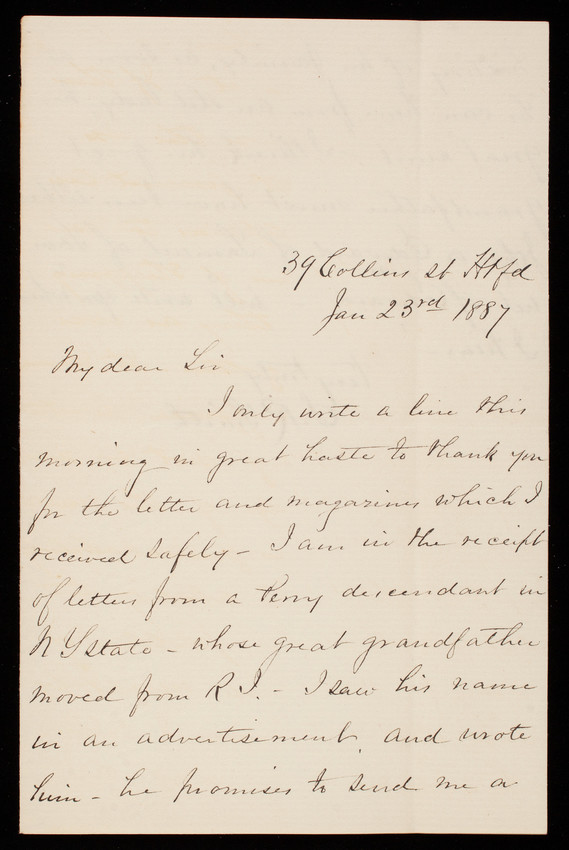 39 Collins st Htfd
Jan 23rd 1887
My dear Sir
I only write a line this
morning in great haste to thank you
for the letter and magazines which I
received safely - I am in the receipt
of letters from a Perry descendant in
N Y state - whose great grandfather
moved from R I. - I saw his name
in an advertisement, and wrote
him - he promises to send me a